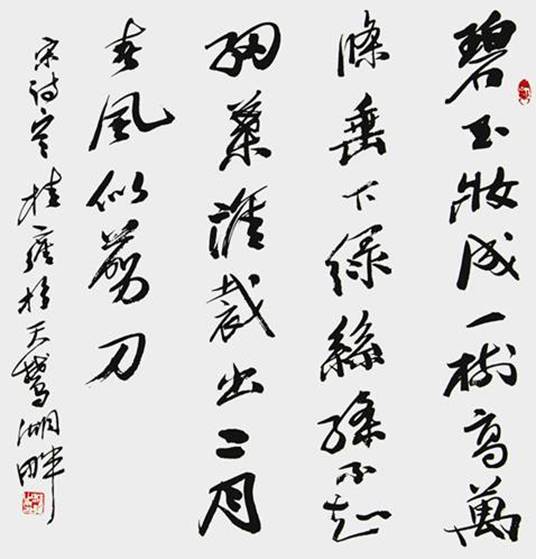 碧玉妝成一樹高萬
條垂下綠絲絛不知
細葉誰裁出二月
春風似剪刀
桂於天鵝湖畔